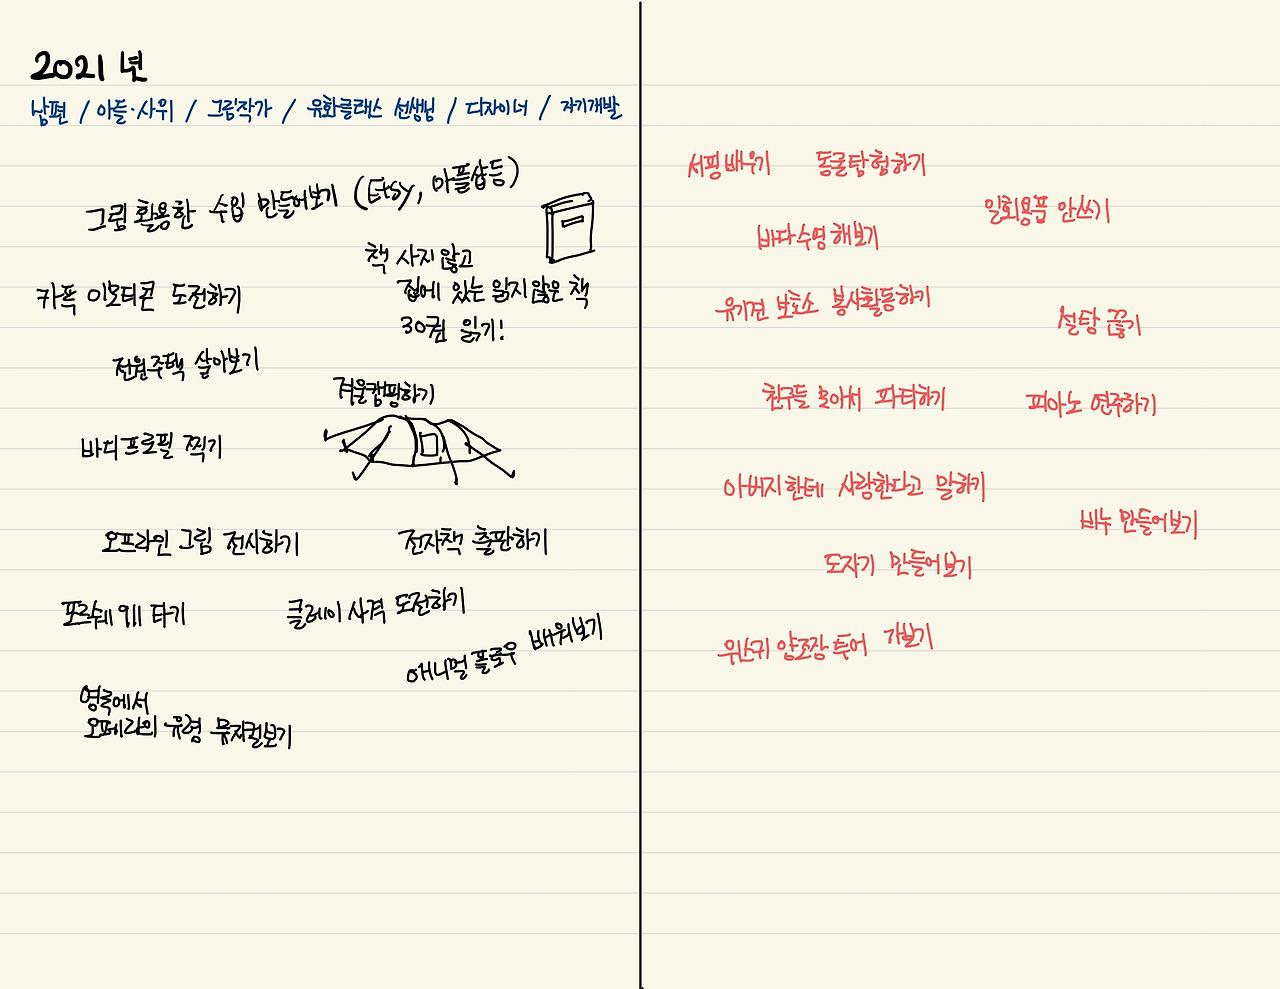 2021년
남편 / 아들·사위 / 그림작가 / 유화클래스 선생님 / 디자이너 / 자기개발
그림 활용한 수입 만들어보기 (Etsy, 아플샵등)
책 사지 않고
집에 있는 읽지않은 책
30권 읽기!
카톡 이모티콘 도전하기
전원주택 살아보기
겨울캠핑하기
바디프로필 찍기
오프라인 그림 전시하기
전자책 출판하기
포르쉐 911 타기
클레이 사격 도전하기
애니멀 플로우 배워보기
영국에서
오페라의 유령 뮤지컬보기
서핑 배우기
동굴탐험하기
일회용품 안쓰기
바다수영 해보기
유기견 보호소 봉사활동하기
설탕 끊기
친구들 모아서 파티하기
피아노 연주하기
아버지한테 사랑한다고 말하기
비누 만들어보기
도자기 만들어보기
위스키 양조장 투어 가보기